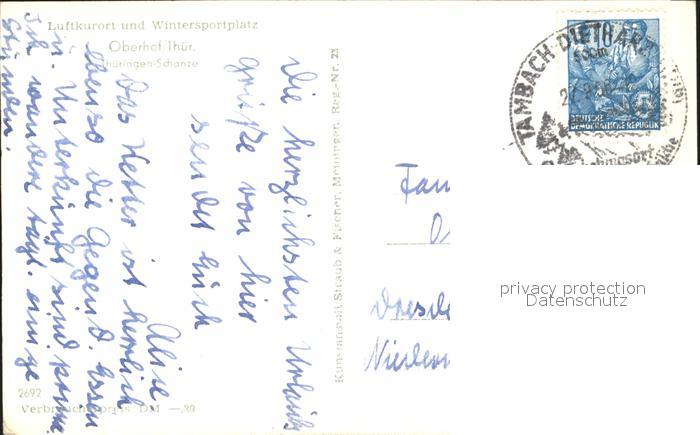 Luftkurort und Wintersportplatz
Oberhof/Thür.
Thüringen-Schanze
Die herzlichsten Urlaubs
grüße von hier
sendet Euch
Alice
Das Wetter ist herrlich
ebenso die Gegend. Essen
u. Unterkunft sind prima.
Ich wandere tägl. einige
Stunden.
2692
Verbraucherpreis DM —,20
Kunstanstalt Straub & Fischer, Meiningen, Reg.-Nr. 23
TAMBACH-DIETHARZ
10
DEUTSCHE
DEMOKRATISCHE REPUBLIK
Fam
Dresde
privacy protection
Datenschutz